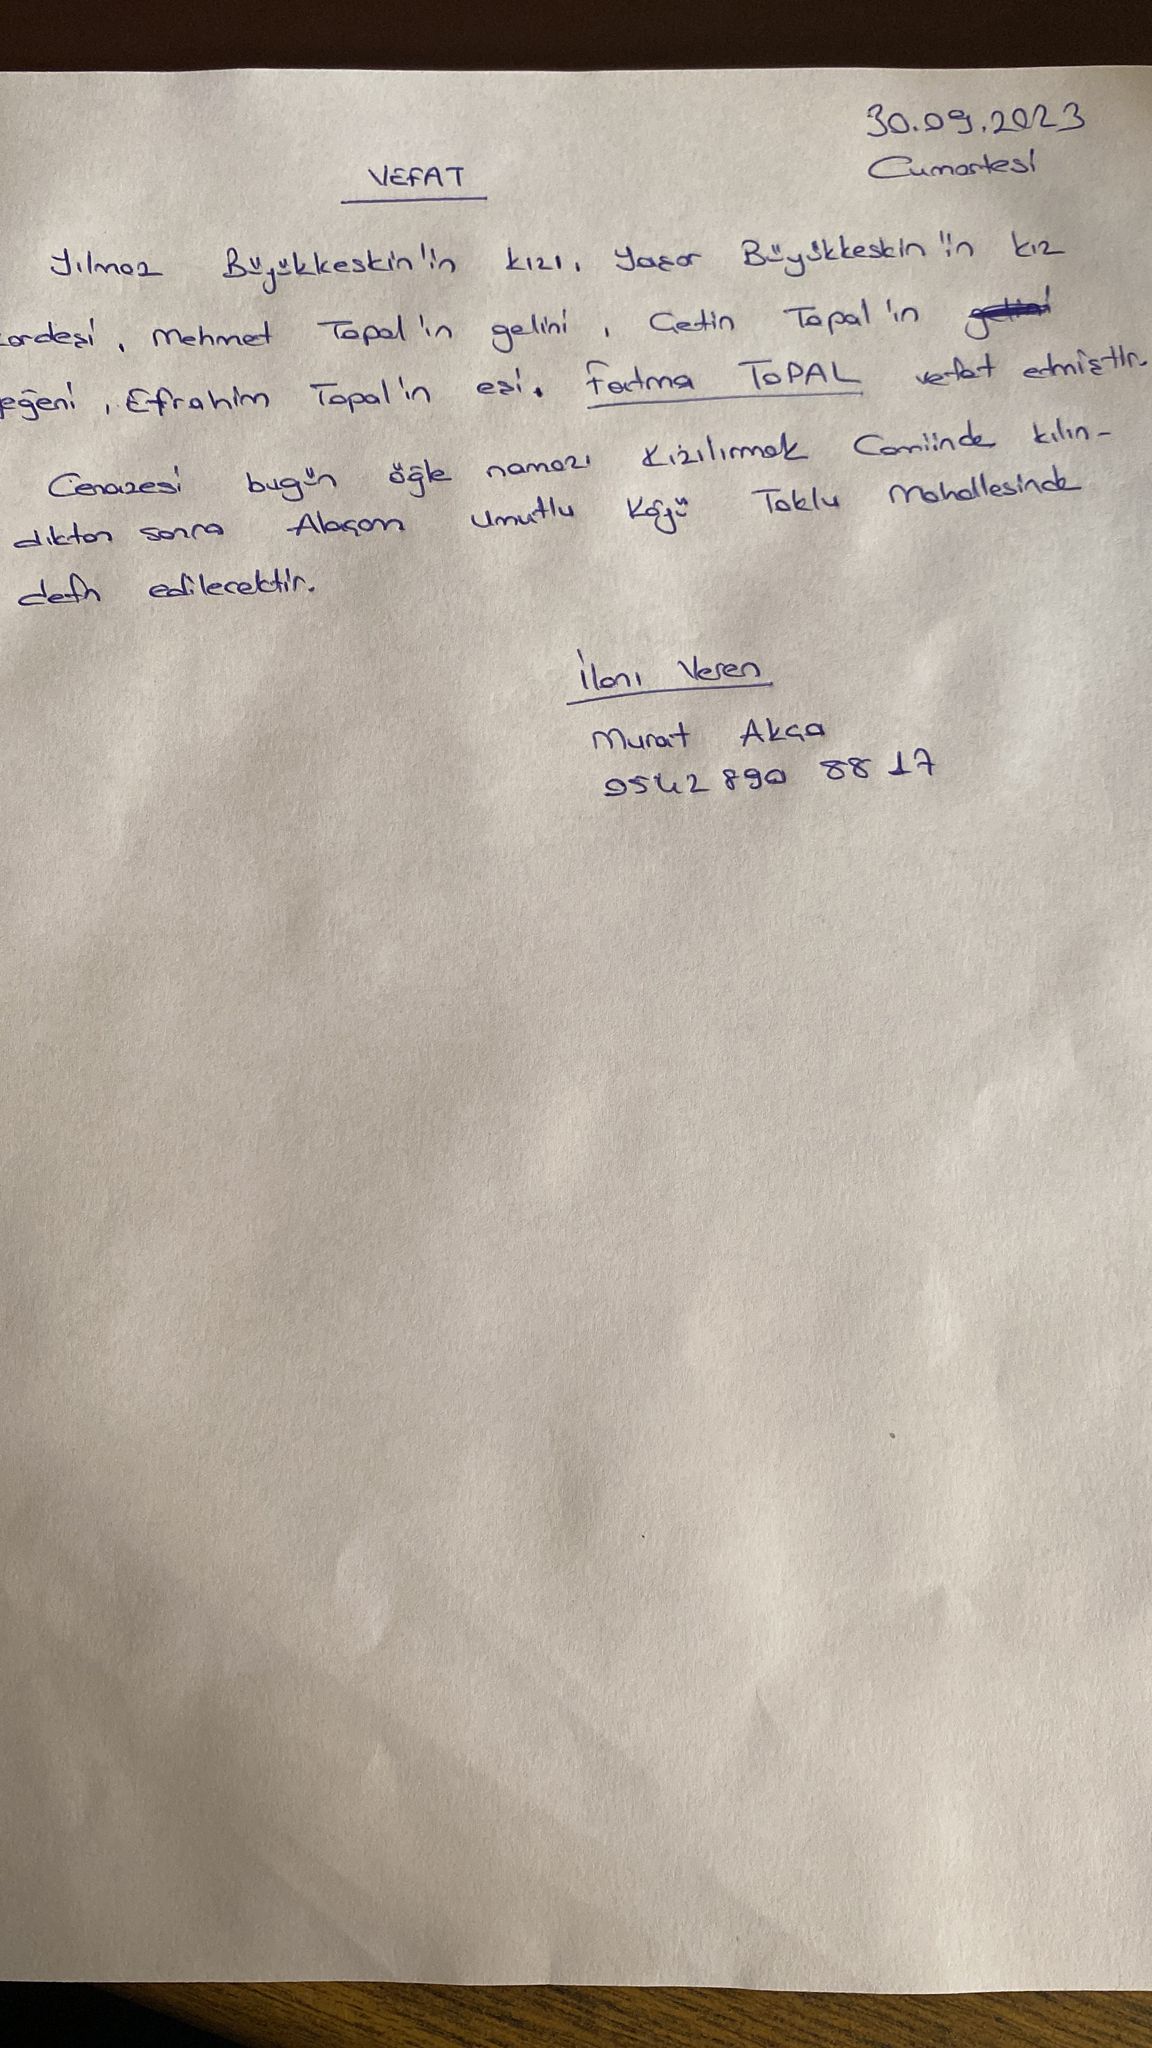 30.09.2023
Cumartesi
VEFAT
Yılmaz Büyükkeskin'in kızı, Yaşar Büyükkeskin'in kız
kardeşi, Mehmet Topal'ın gelini, Çetin Topal'ın
yeğeni, Efrahim Topal'ın eşi. Fatma TOPAL vefat etmiştir.
Cenazesi bugün öğle namazı Kızılırmak Camiinde kılın-
dıktan sonra Alaçam Umutlu Köyü Toklu Mahallesinde
defn edilecektir.
İlanı Veren
Murat Akça
0542 890 88 17